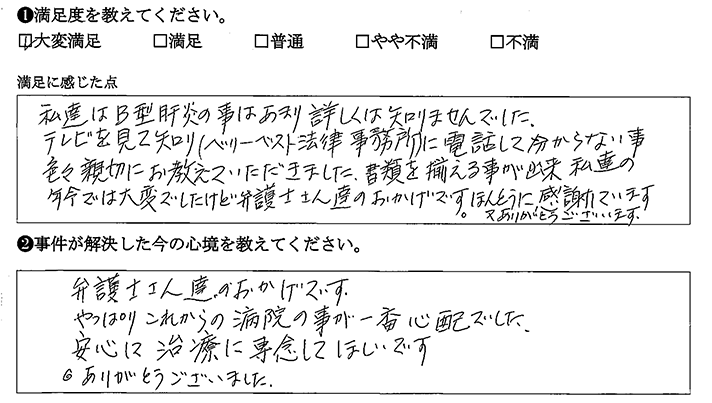 ❶満足度を教えてください。
☑大変満足 □満足 □普通 □やや不満 □不満
満足に感じた点
私達はB型肝炎の事はあまり詳しくは知りませんでした.
テレビを見て知り(ベリーベスト法律事務所)に電話して分からない事
色々親切にお教えていただきました.書類を揃える事が出来 私達の
年令では大変でしたけど弁護士さん達のおかげです。ほんとうに感謝れています
ありがとうございます.
❷事件が解決した今の心境を教えてください。
弁護士さん達のおかげです.
やっぱりこれからの病院の事が一番心配でした.
安心に治療に専念してほしいです
◎ありがとうございました.